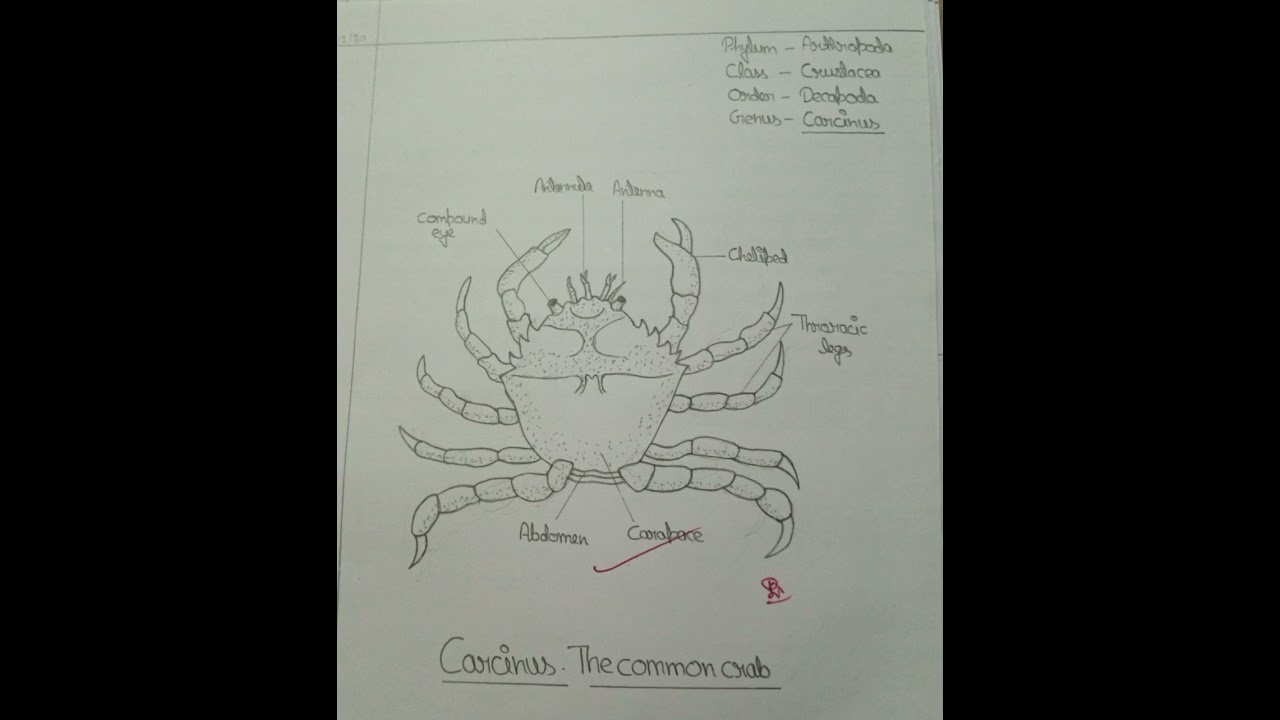 12/20
Phylum - Arthropoda
Class - Crustacea
Order - Decapoda
Genus - Carcinus
Antennule Antenna
Compound
eye
Cheliped
Thoracic
legs
Abdomen Carapace
Carcinus. The common crab